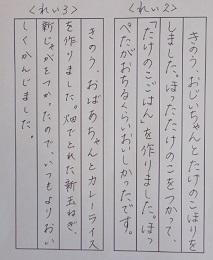 ＜れい2＞
きのう、おじいちゃんとたけのこほりを
しました。ほったたけのこをつかって、
「たけのこごはん」を作りました。ほっ
ぺたがおちるくらいおいしかったです。
＜れい3＞
きのう、おばあちゃんとカレーライス
を作りました。畑でとれた新玉ねぎ、
新じゃがをつかったので、いつもよりおい
しくかんじました。